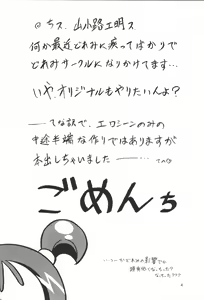 ちス、山小路工明ス
何か最近どれみに戻ってばかりで
どれみサークルになりかけてます…
いや、オリジナルもやりたいんよ?
——てな訳で、エロシーンのみの
中途半端な作りではありますが
本出しちゃいました ——…
ごめんち